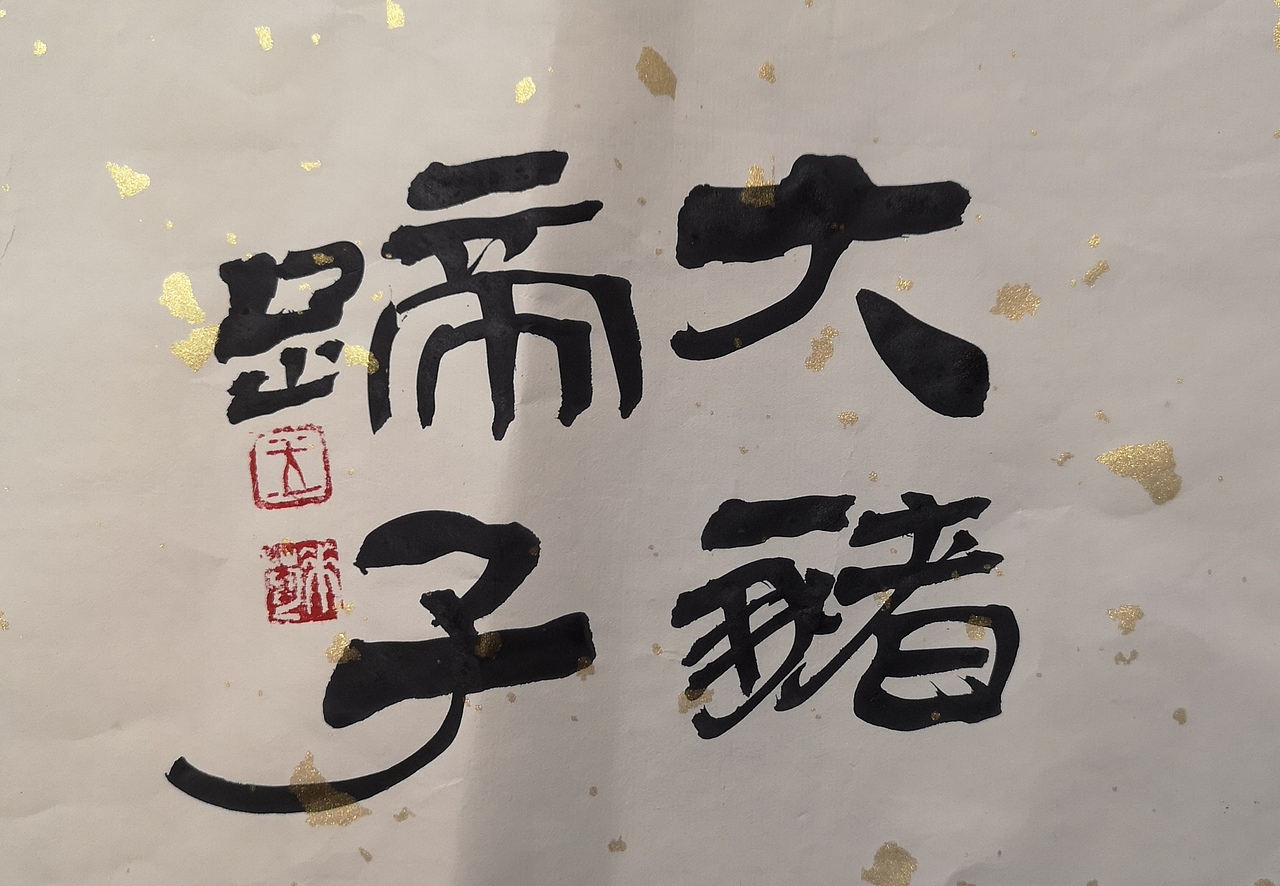 大豬
蹄子